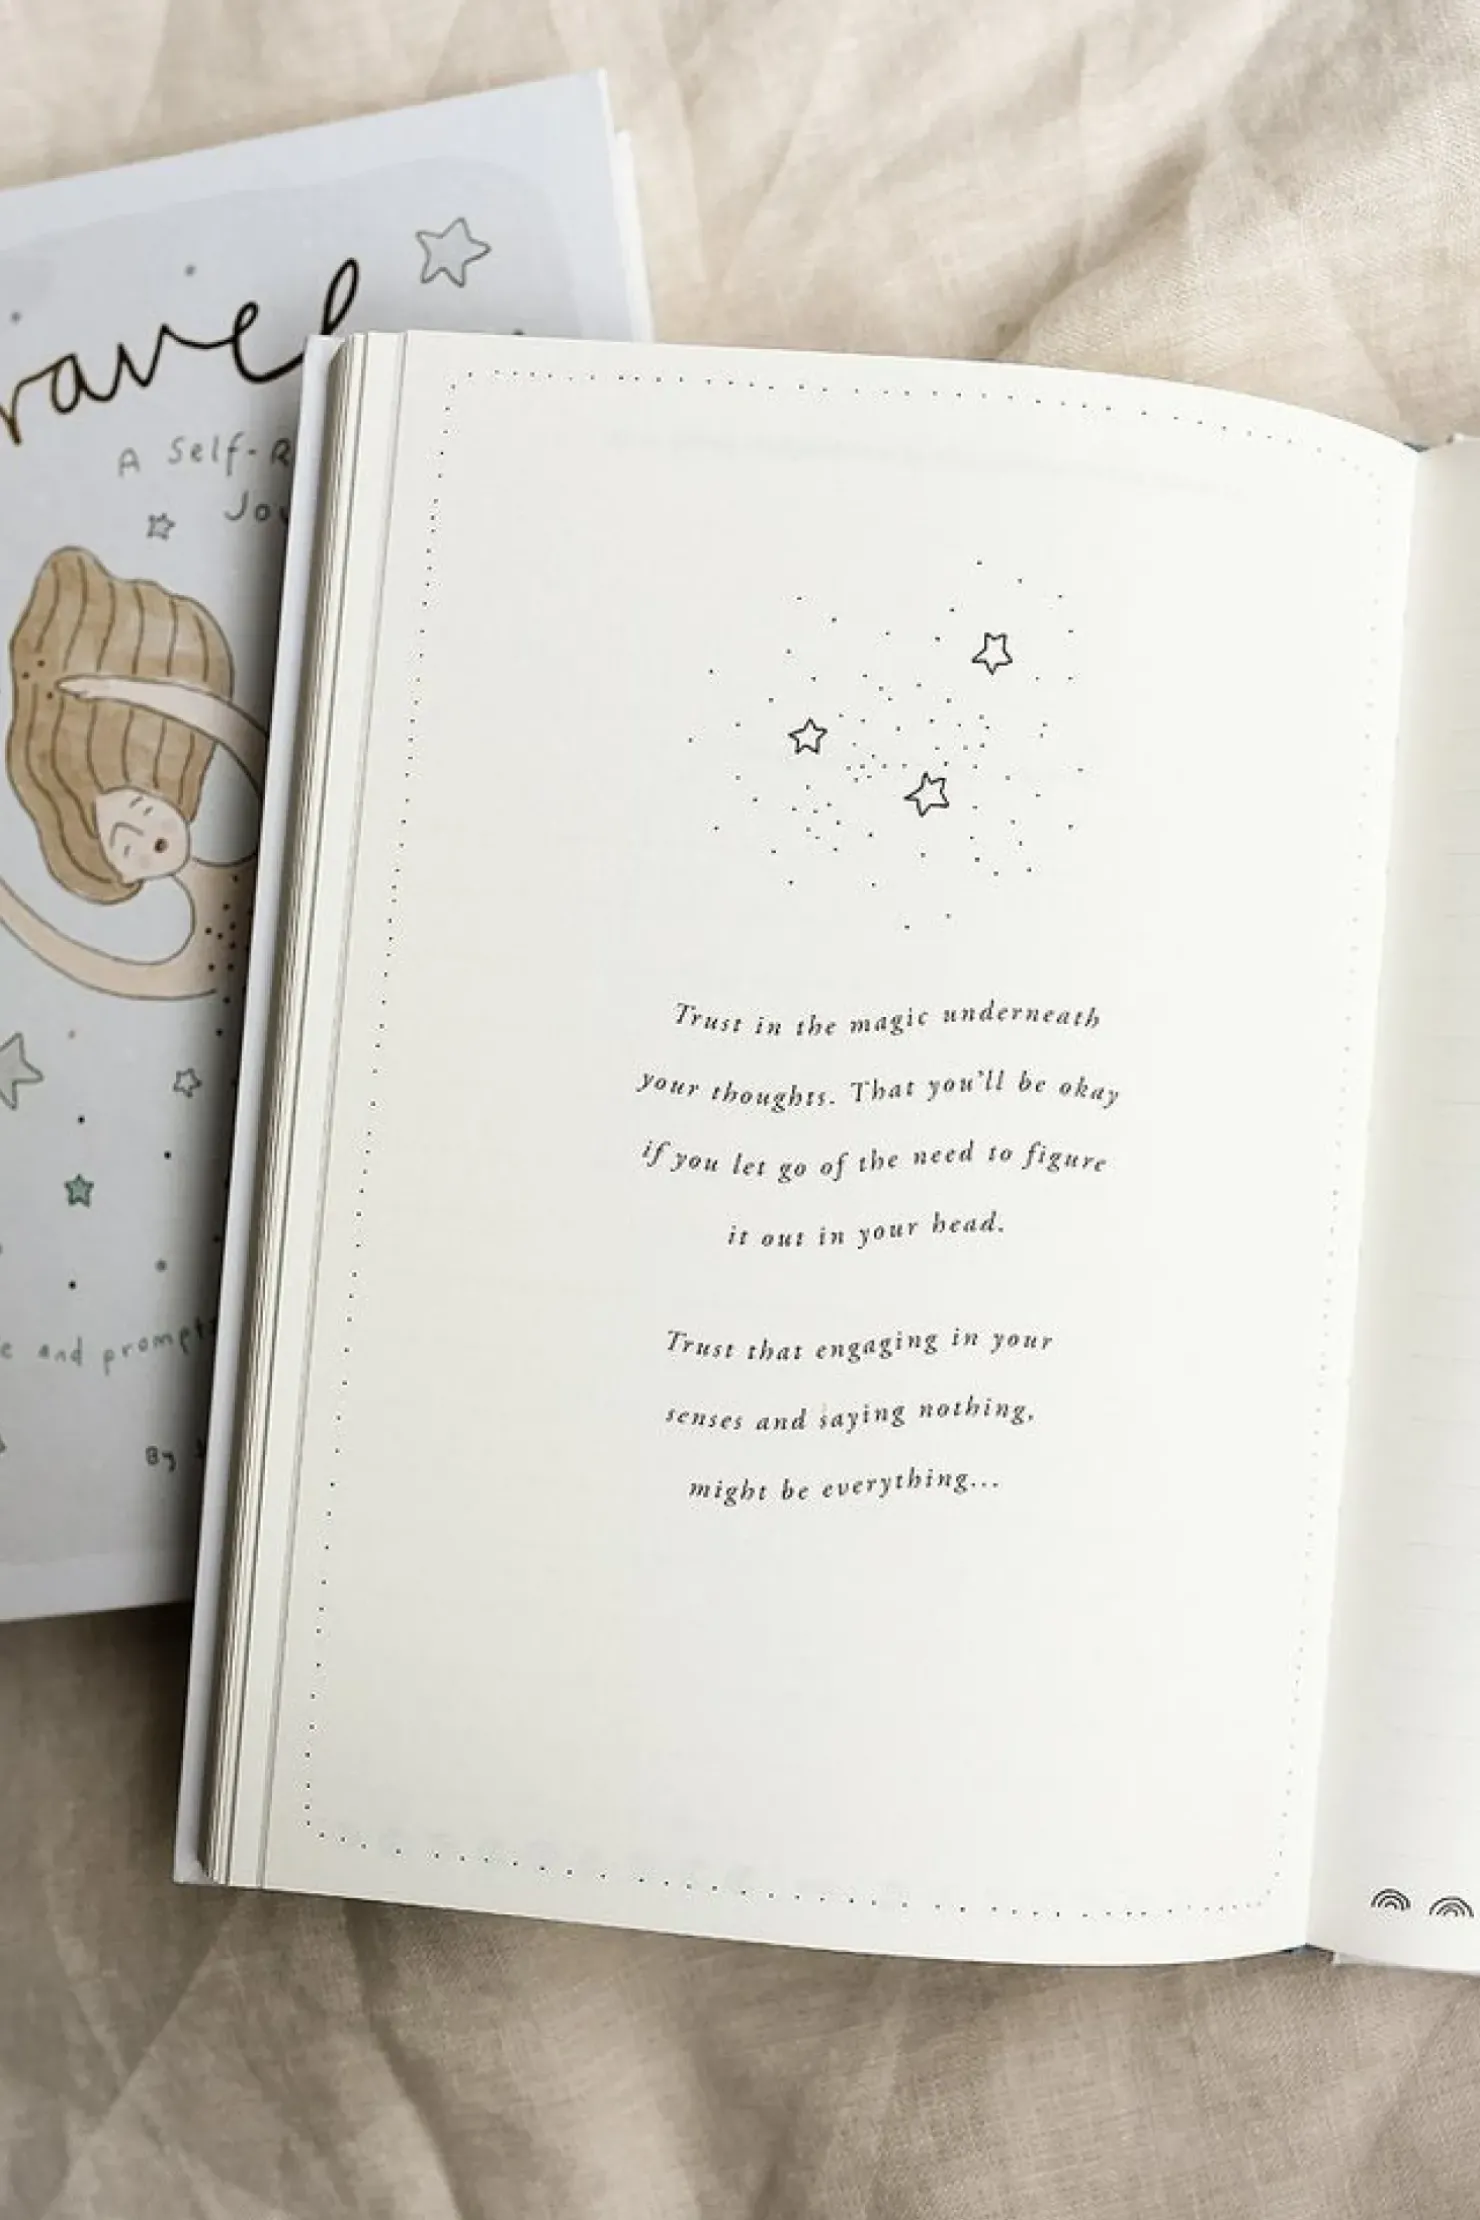 ravel
A Self-R
Jou
and prompts
By
Trust in the magic underneath
your thoughts. That you'll be okay
if you let go of the need to figure
it out in your head.
Trust that engaging in your
senses and saying nothing,
might be everything...